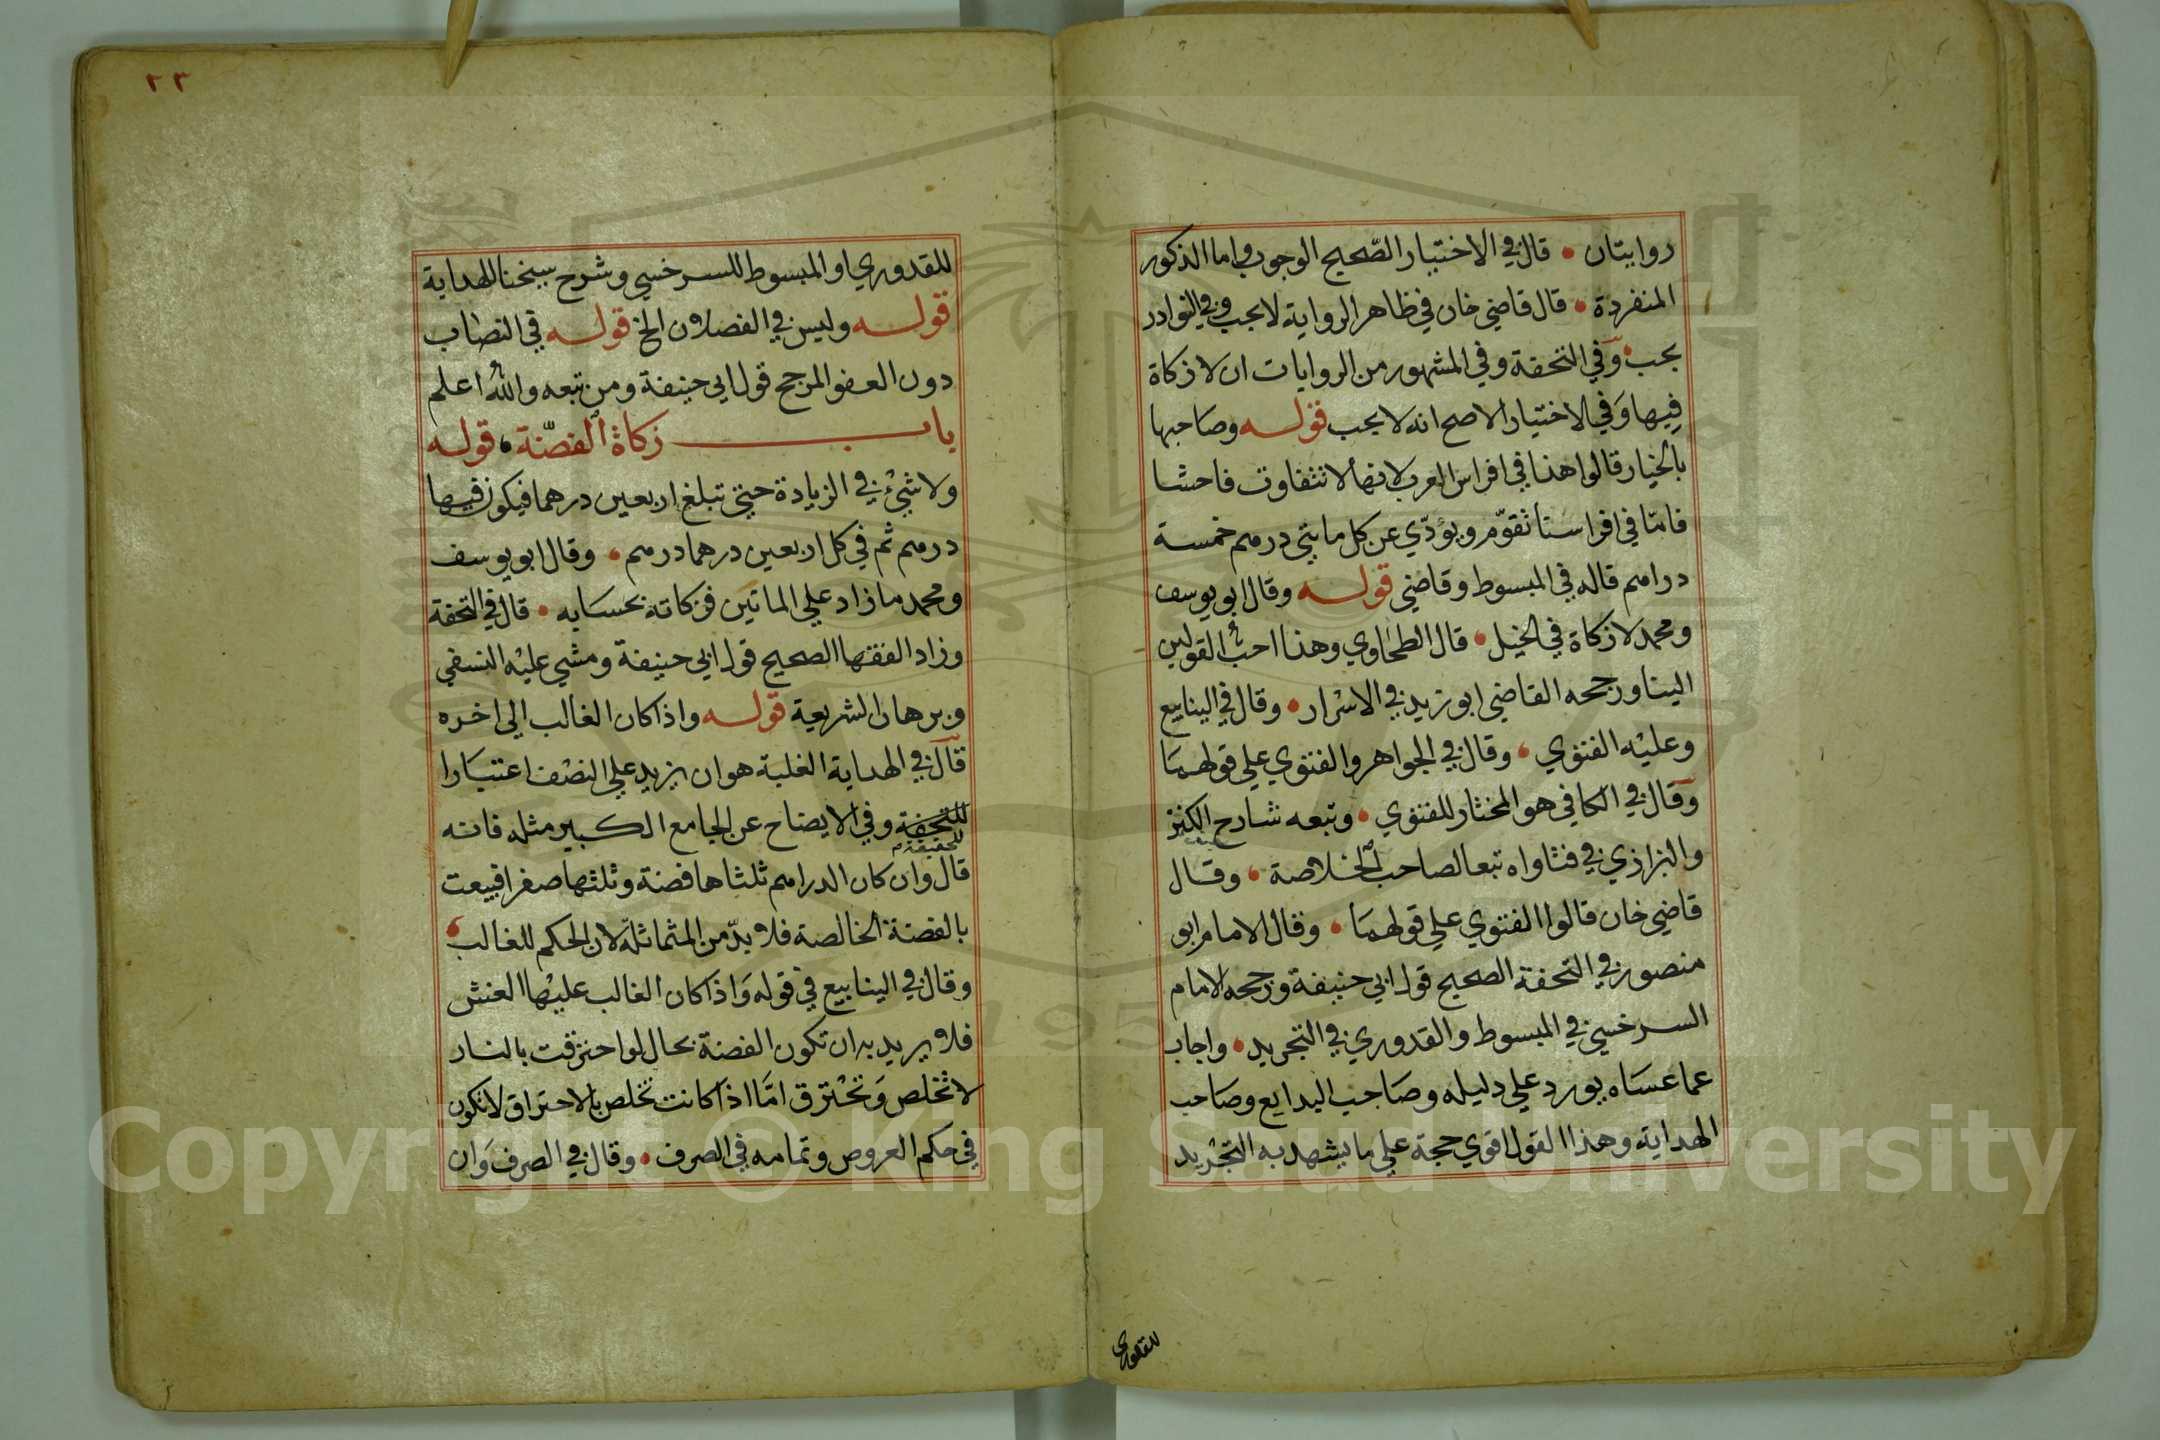 روايتان • قال في الاختيار الصّحيح الوجوب واما الذكور
المنفردة • قال قاضي خان في ظاهر الرواية لا يجب وفي النوادر
يجب • وفي التحفة وفي المشهور من الروايات ان لا زكاة
فيها وَفي الاختيار الاصح انه لا يجب قوله وصاحبها
بالخيار قالوا هذا في افراس العرب لانها لا تتفاوت فاحشا
فامّا في افراسنا تقوّم ويؤدّي عن كل مايتي درهم خمسة
دراهم قاله في المبسوط وقاضي قوله وقال ابو يوسف
ومحمد لا زكاة في الخيل • قال الطحاوي وهذا احبّ القولين
الينا ورجحه القاضي ابو زيد في الاسْرار • وقال في الينابيع
وعليْه الفتوي • وقال في الجواهر والفتوي علي قولهما
وقال في الكافي هو المختار للفتوي • وتبعه شارح الكنز
والبزازي في فتاواه تبعا لصاحب الخلاصة • وقال
قاضي خان قالوا الفتوي علي قولهمَا • وقال الامام ابو
منصور في التحفة الصحيح قول ابي حنيفة ورجحه الامام
السرخسي في المبسوط والقدوري في التجريد • واجاب
عما عسَاه يورد علي دليله وصَاحب البدايع وصَاحب
الهداية وهذا القول اقوي حجة علي ما يشهد به التجْريد
للقدوري
٢٣
للقدوري والمبسوط للسرخسي وشرح شيخنا للهداية
قوله وليس في الفصلان الخ قوله في النصاب
دون العفو المرجح قول ابي حنيفة ومن تبعه والله اعلم
باب زكاة الفضّة • قوله
ولا شيْء في الزيادة حتي تبلغ اربعين درهما فيكون فيها
درهم ثم في كل اربعين درهما درهم • وقال ابو يوسف
ومحمد ما زاد علي الماتَين فزكاته بحسَابه • قال في التحفة
وزاد الفقها الصحيح قول ابي حنيفة ومشي عليْه النسفي
وبرهان الشريعة قوله واذا كان الغالب الي اخره
قال في الهداية الغلبة هو ان يزيد علي النصْف اعتبَارا
للتحفة وفي الايضاح عن الجامع الكبير مثله فانه
للحقيقة م
قال وان كان الدراهم ثلثاها فضة وثلثها صفرا فبيعت
بالفضة الخالصة فلا بدّ من المتماثلة لان الحكم للغالب
وقال في الينابيع في قوله وَاذا كان الغالب عليْها الغش
فلا يريد به ان تكون الفضة بحال لو احترقت بالنار
لا تخلص وَتحْترق امَّا اذا كانت تخلص بالاحتراق لا تكون
في حكم العروض وتمامه في الصرف • وقال في الصرف وَان
Copyright © King Saud University
1957